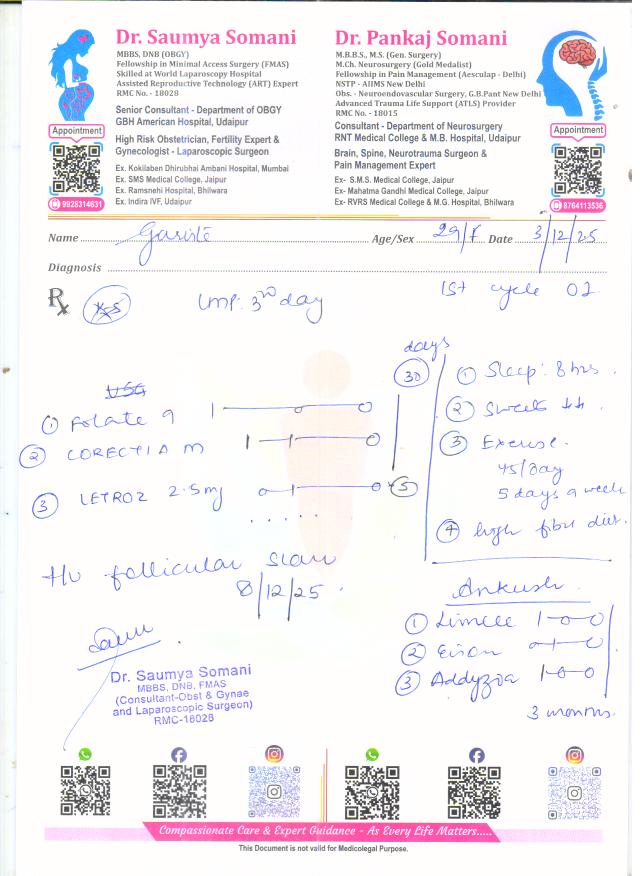 Dr. Saumya Somani
MBBS, DNB (OBGY)
Fellowship in Minimal Access Surgery (FMAS)
Skilled at World Laparoscopy Hospital
Assisted Reproductive Technology (ART) Expert
RMC No. - 18028
Senior Consultant - Department of OBGY
GBH American Hospital, Udaipur
High Risk Obstetrician, Fertility Expert &
Gynecologist - Laparoscopic Surgeon
Ex. Kokilaben Dhirubhai Ambani Hospital, Mumbai
Ex. SMS Medical College, Jaipur
Ex. Ramsnehi Hospital, Bhilwara
Ex. Indira IVF, Udaipur
Appointment
9928314631
Dr. Pankaj Somani
M.B.B.S., M.S. (Gen. Surgery)
M.Ch. Neurosurgery (Gold Medalist)
Fellowship in Pain Management (Aesculap - Delhi)
NSTP - AIIMS New Delhi
Obs. - Neuroendovascular Surgery, G.B.Pant New Delhi
Advanced Trauma Life Support (ATLS) Provider
RMC No. - 18015
Consultant - Department of Neurosurgery
RNT Medical College & M.B. Hospital, Udaipur
Brain, Spine, Neurotrauma Surgeon &
Pain Management Expert
Ex- S.M.S. Medical College, Jaipur
Ex- Mahatma Gandhi Medical College, Jaipur
Ex- RVRS Medical College & M.G. Hospital, Bhilwara
Appointment
8764113536
Name Age/Sex 29/F Date 3/12/25
Diagnosis
Rx LMP: 3rd day 1st cycle 02
days
30
USG
① Folate 9
② CORECTIA M
③ LETROZ 2.5mg 5
follicular scan
8/12/25
① Sleep: 8 hrs.
② Sweets ↓↓.
③ Excuse.
45/day
5 days a week
④ high fibre diet.
Ankush
① Limcee 1-0-0
② 0-1-0
③ Addyzoa 1-0-0
3 months.
Dr. Saumya Somani
MBBS, DNB, FMAS
(Consultant-Obst & Gynae
and Laparoscopic Surgeon)
RMC-18028
Compassionate Care & Expert Guidance - As Every Life Matters.....
This Document is not valid for Medicolegal Purpose.